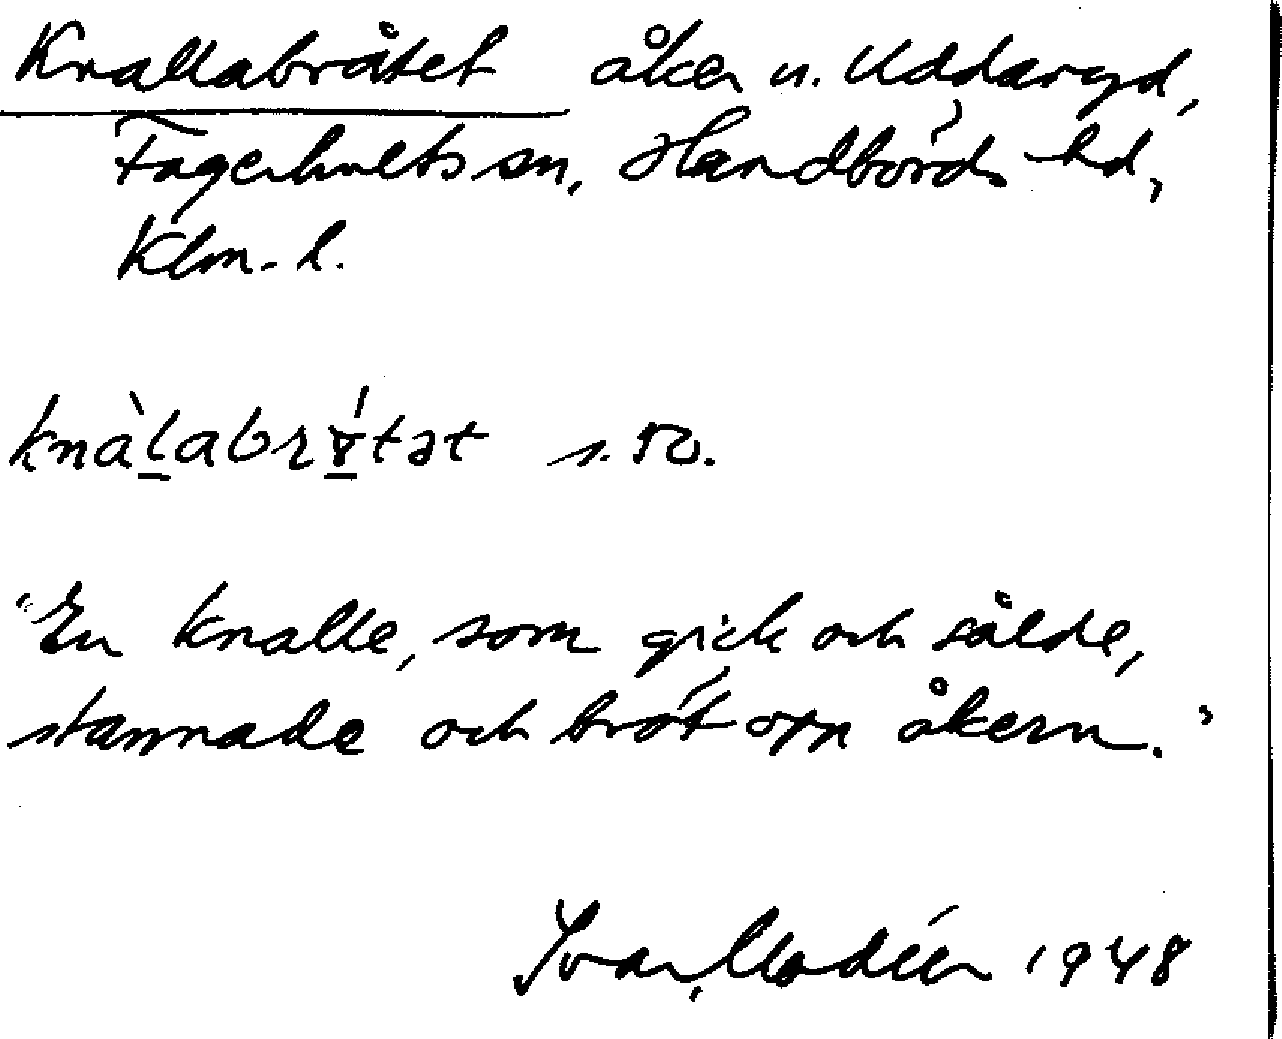 Knallabråtet åker u. Uddaryd,
Fagerhults sn, Handbörds hd,
Klm. l.
knàlabrɤ́tət s. 50.
"En knalle, som gick och sålde,
stannade och bröt opp åkern."
Ivar Modéer 1948